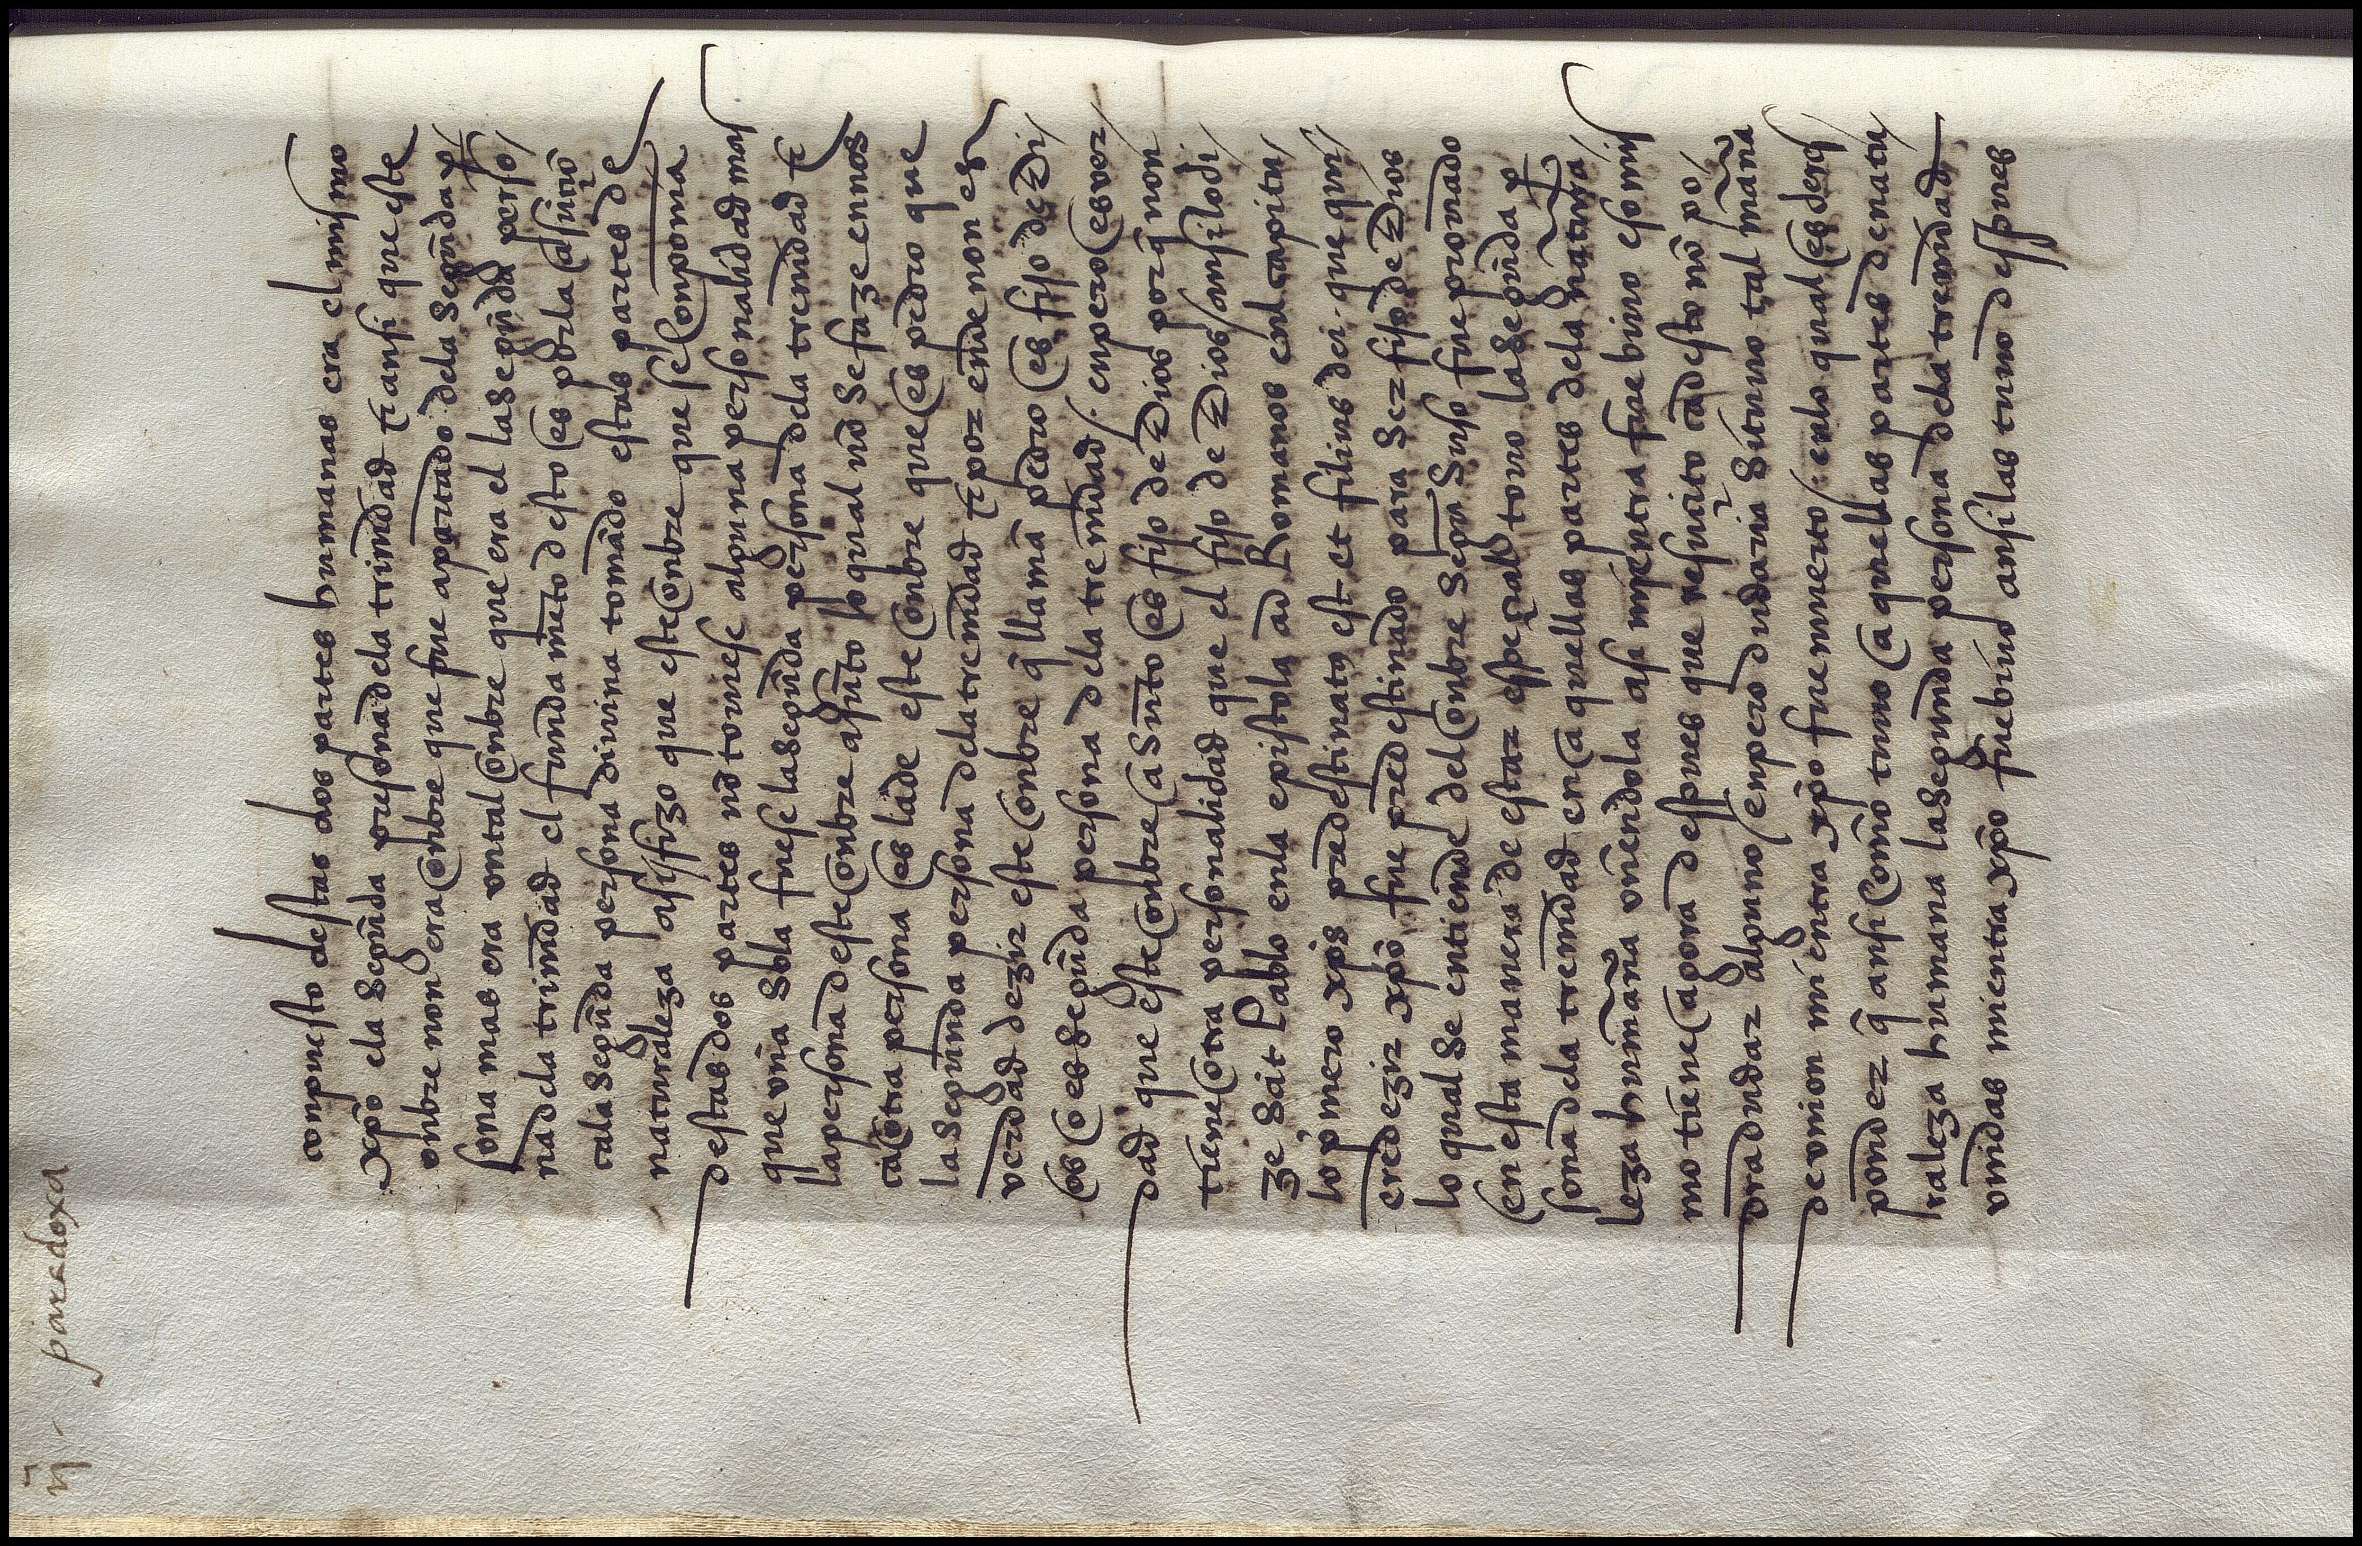 ij paradoxa
conpuesto destas dos partes humanas era el mismo
xpō e la segūda presona dela trinidad τ ansi que este
onbre non era onbre que fue apartado dela segūda p̱
sona mas era vn tal onbre que era el la segūda perso/
na dela trinidad el fundamēto desto es por la asunciō
ca la segūda persona divina tomādo estas partes de
naturaleza asisizo que este onbre que se conponia
destas dos partes nō touiese alguna personalidad mas
que vna sola fuese la segūda persona dela trenidad τ
la persona deste onbre asunto lo qual nō se faze en nos
ca otra persona es la de este onbre que es pedro que
la segunda persona dela trenidad τ por ende non es
verdad dezir este onbre q̄ llamā pedro es fijo de di/
os o es segūda persona dela trenidad / enpero es ver/
dad que este onbre asunto es fijo de dios porq̄ non
tiene otra personalidad que el fijo de dios / ansi lo di/
ze sāt pablo en la epistola ad Romanos en el capitu/
lo pͥmero xp̄s predestinatꝯ est et filius dei. que qui/
ere dezir xpō fue predestinado para ser fijo de dios
lo qual se entiende del onbre segū suso fue pronado
en esta manera de estar espeçial tomo la segūda p̱
sona dela trenidad en aquellas partes dela natura/
leza humana vniendola asi mientra fue biuo eso mis
mo tiene agora despues que resuçito ca desto nō po/
dra dudar alguno / enpero dudaria si tuuo tal māna
de vnion mientra xpō fue muerto / en lo qual es de res
ponder q̄ ansi como tuuo aquellas partes de natu/
raleza humana la segunda persona dela trenidad
vnidas mientra xpō fue biuo ansi las tuuo despues